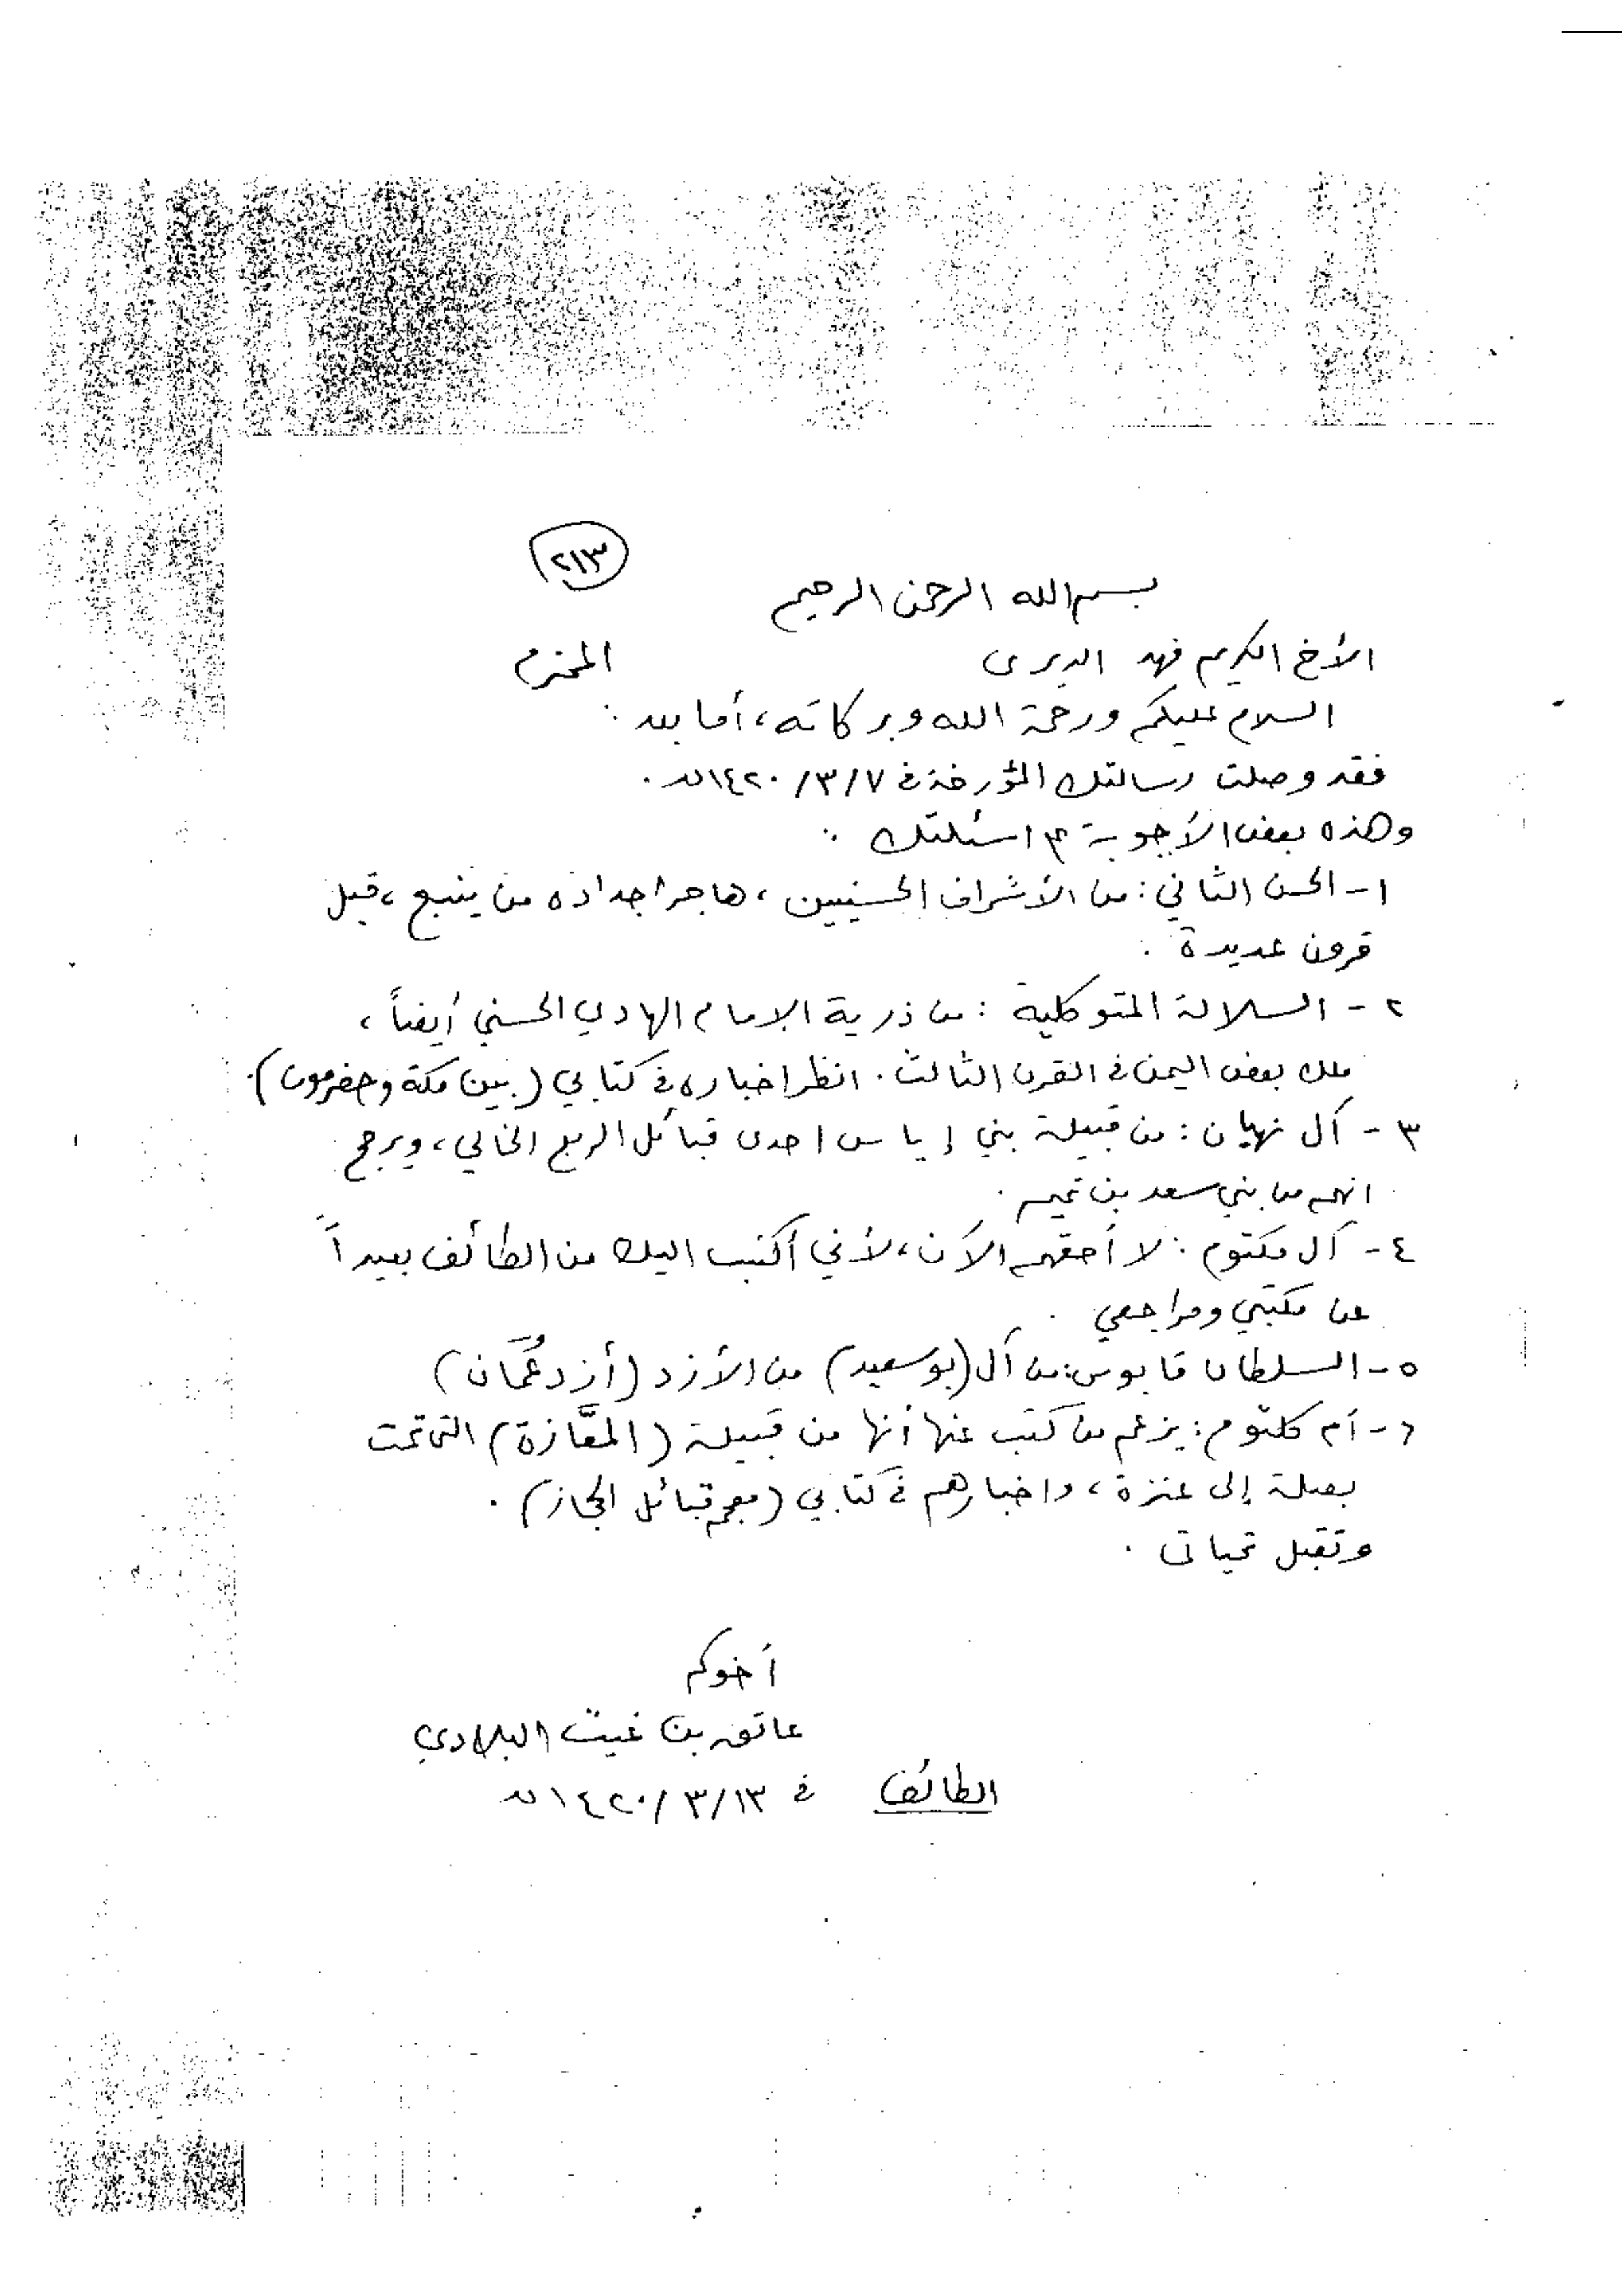 ٢١٣
بسم الله الرحمن الرحيم
الأخ الكريم فهد الديري المحترم
السلام عليكم ورحمة الله وبركاته، أما بعد :
فقد وصلت رسالتك المؤرخة في ١٤٢٠/٣/٧هـ .
وهذه بعض الأجوبة م اسئلتك :
١- الحسن الثاني : من الأشراف الحسنيين ، هاجر اجداده من ينبع ، قبل
قرون عديدة .
٢- السلالة المتوكلية : من ذرية الإمام الهادي الحسني أيضاً ،
ملك بعض اليمن في القرن الثالث . انظر اخباره في كتابي (بين مكة وحضرموت) .
٣- آل نهيان : من قبيلة بني إياس احدى قبائل الربع الخالي ، ويرجح
انهم من بني سعد بن تميم .
٤- آل مكتوم : لا أحققهم الآن ، لأني أكتب اليك من الطائف بعيداً
عن مكتبي ومراجعي .
٥- السلطان قابوس : من آل (بوسعيد) من الأزد (أزد عُمَان)
٦- أم كلثوم : يزعم من كتب عنها أنها من قبيلة (المعَّازة) التي تمت
بصلة إلى عنزة ، واخبارهم في كتابي (معجم قبائل الحجاز) .
وتقبل تحياتي .
أخوكم
عاتق بن غيث البلادي
الطائف في ١٤٢٠/٣/١٣هـ